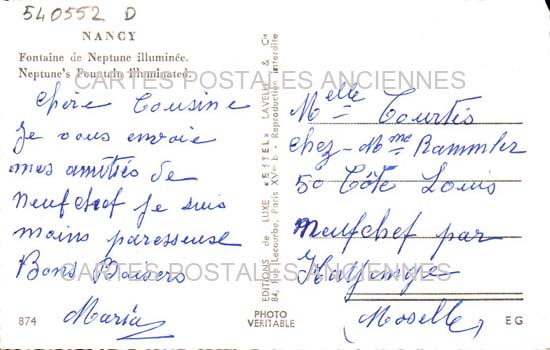 540552 D
NANCY
Fontaine de Neptune illuminée.
Neptune's Fountain Illuminated.
CARTES POSTALES ANCIENNES
chère Cousine
Je vous envoie
mes amitiés de
Neufchef je suis
moins paresseuse
Bons Baisers
Maria
CARTES POSTALES ANCIENNES
874
EDITIONS de LUXE «ESTEL» LAVELLE & Cie
84, Rue Lecourbe, Paris XVe b - Reproduction interdite
PHOTO
VERITABLE
Melle Courtès
chez - Mme Rammler
50 Côte Louis
Neufchef par
Hayange
(Moselle)
EG